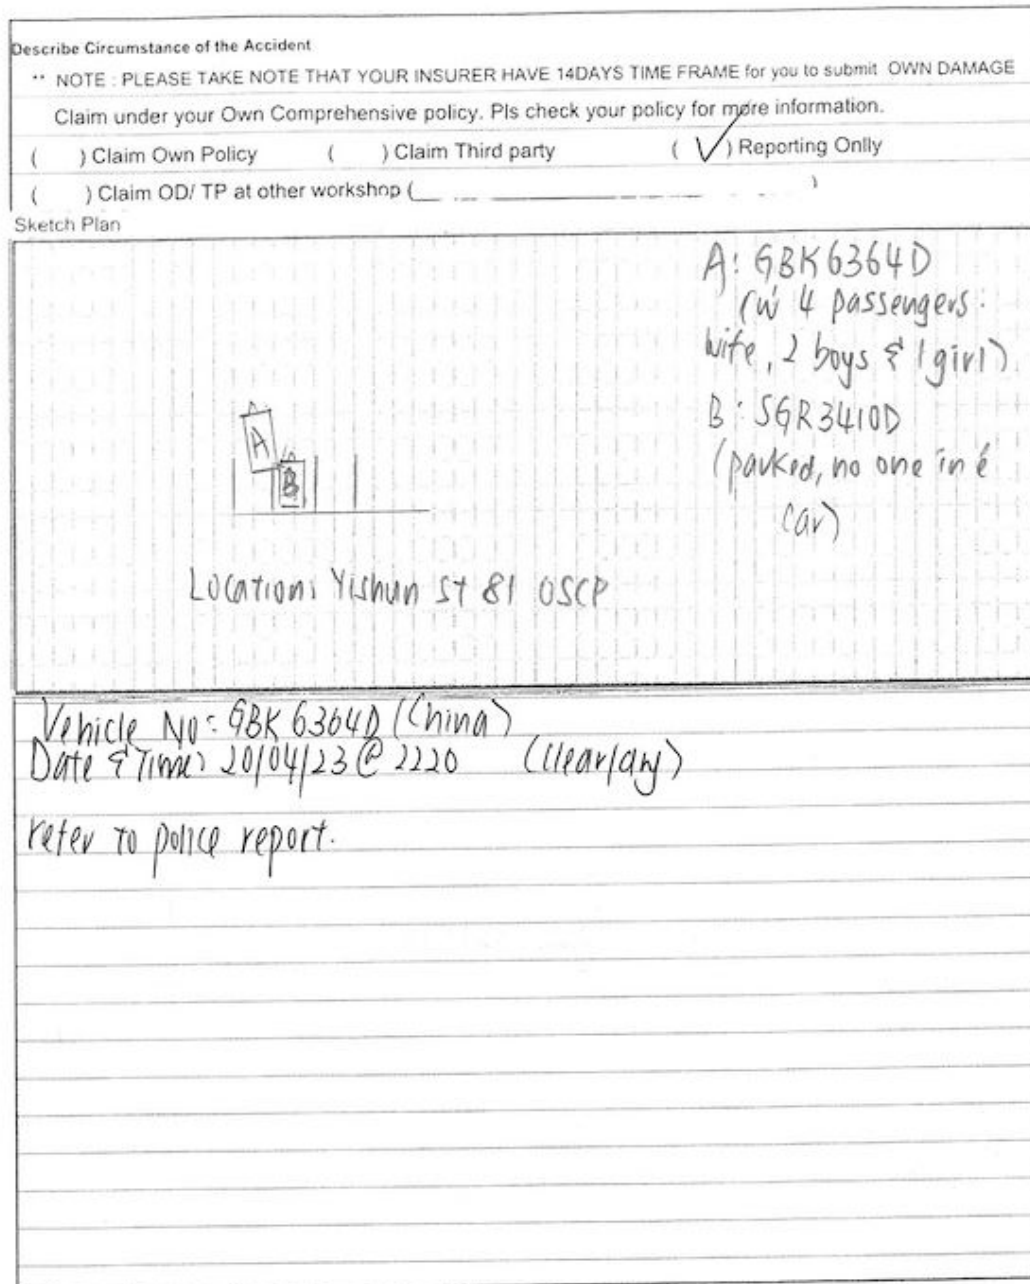 Describe Circumstance of the Accident
** NOTE : PLEASE TAKE NOTE THAT YOUR INSURER HAVE 14DAYS TIME FRAME for you to submit OWN DAMAGE
Claim under your Own Comprehensive policy. Pls check your policy for more information.
( ) Claim Own Policy ( ) Claim Third party ( ✓ ) Reporting Onlly
( ) Claim OD/ TP at other workshop ( )
Sketch Plan
A: GBK6364D
(w 4 passengers:
wife, 2 boys & 1 girl)
B: SGR3410D
(parked, no one in é
car)
A
B
Location: Yishun St 81 OSCP
Vehicle No: GBK 6364D (China)
Date & Time: 20/04/23 @ 2220 (Clear/dry)
refer to police report.